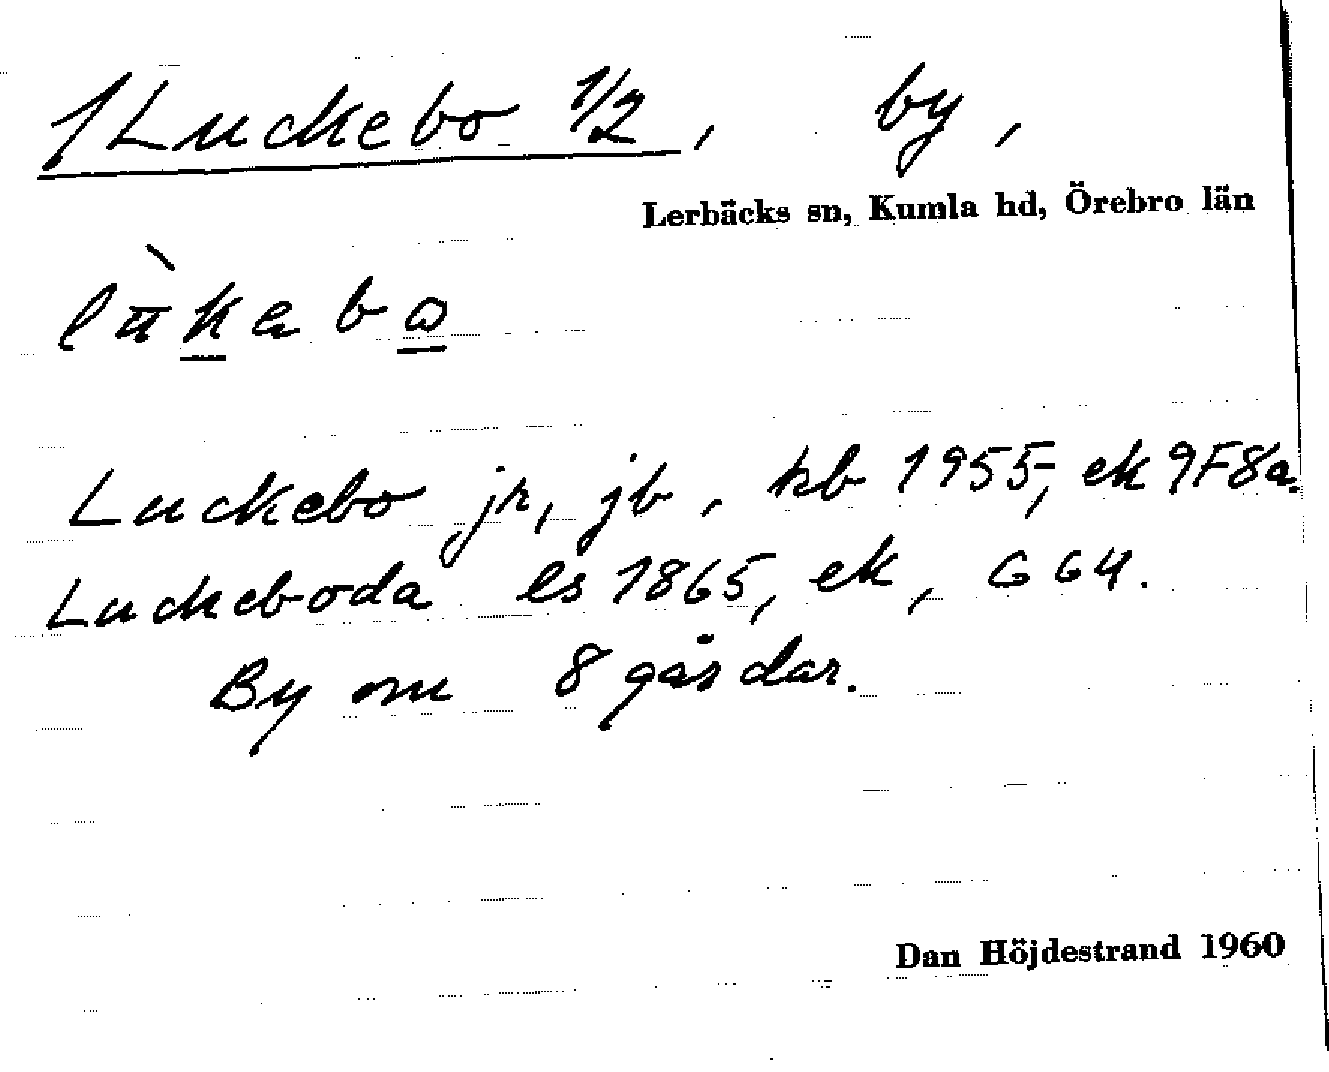 /Luckebo 1/2, by,
Lerbäcks sn, Kumla hd, Örebro län
Luckebo jr, jb, kb 1955, ek 9F8a.
Luckeboda ls 1865, ek, GG4.
By om 8 gårdar.
Dan Höjdestrand 1960